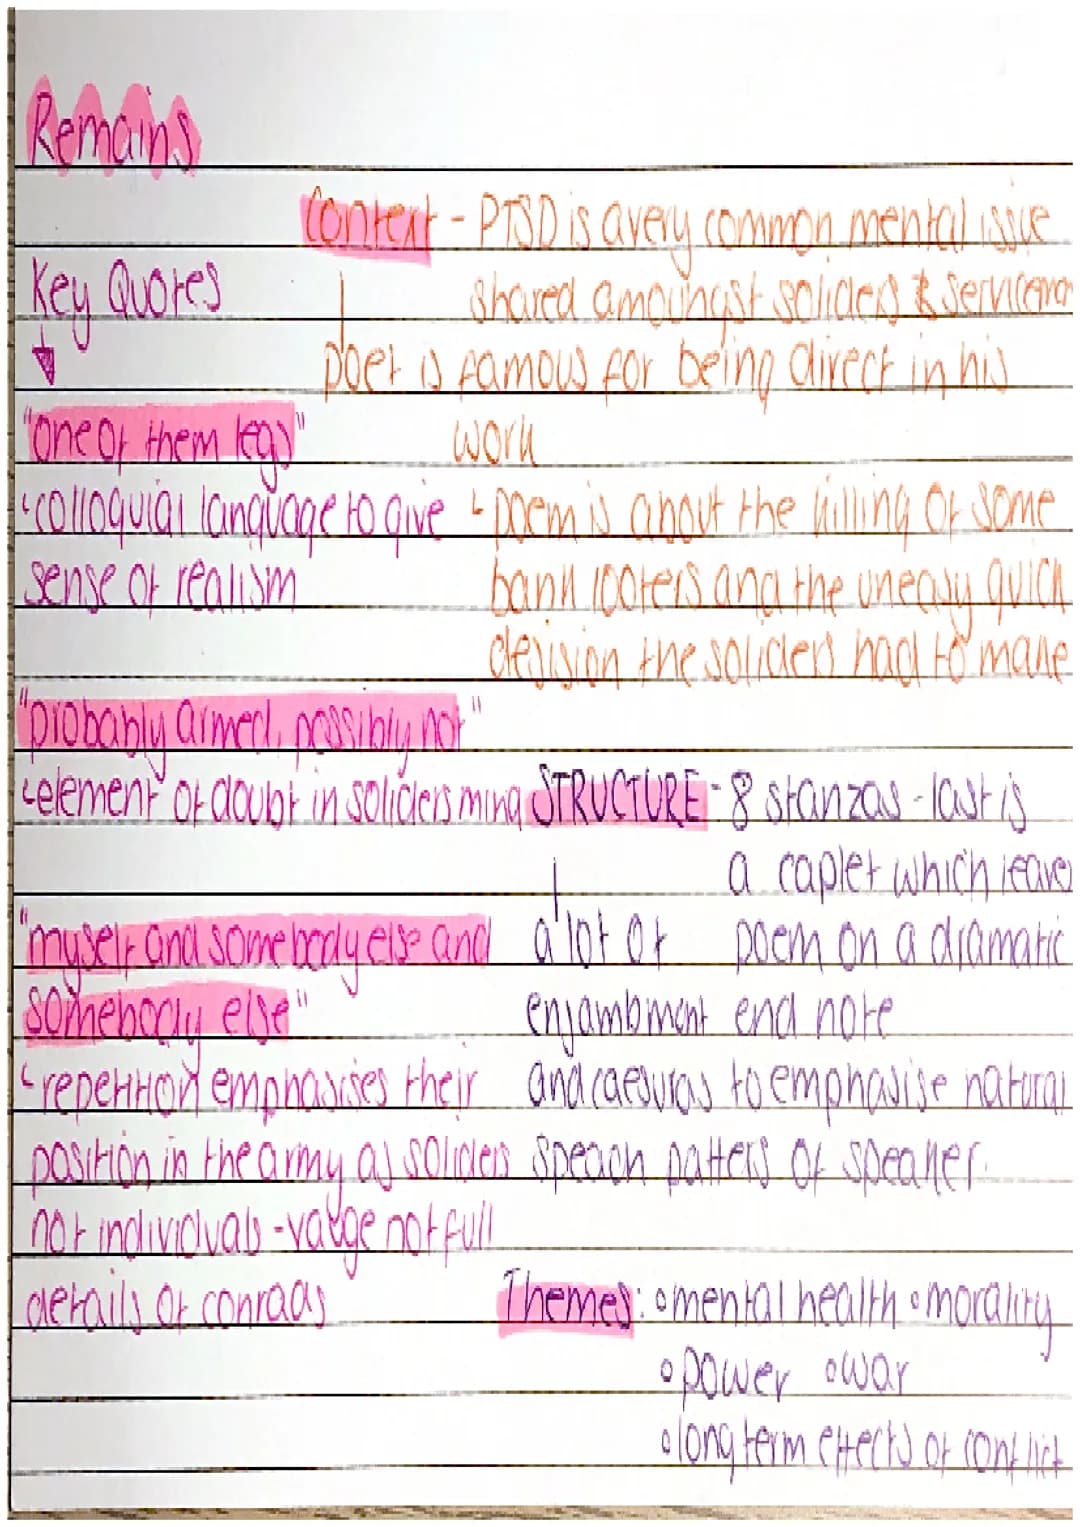 Remains
Context - PTSD is a very common mental issue
shared amoungst soliders &
poet is famous for being direct in his
work
poem is about the killing of some
bank looters and the uneasy quick
desision the soliders had to make
Key Quotes
"one of them legs"
colloquial language to give
sense of realism
"probably armed, possibly not"
element of doubt in soliders mind
"myself and somebody else and
somebody else"
repetition emphasises their
position in the army as soliders
not individuals - vauge not full
details of conrads
STRUCTURE - 8 stanzas - last is
a caplet which leaves
poem on a dramatic
end note
a lot of
enjambment
and caesuras to emphasise natural
speach patters of speaker.
Themes: mental health morality
power war
long term effects of conflict